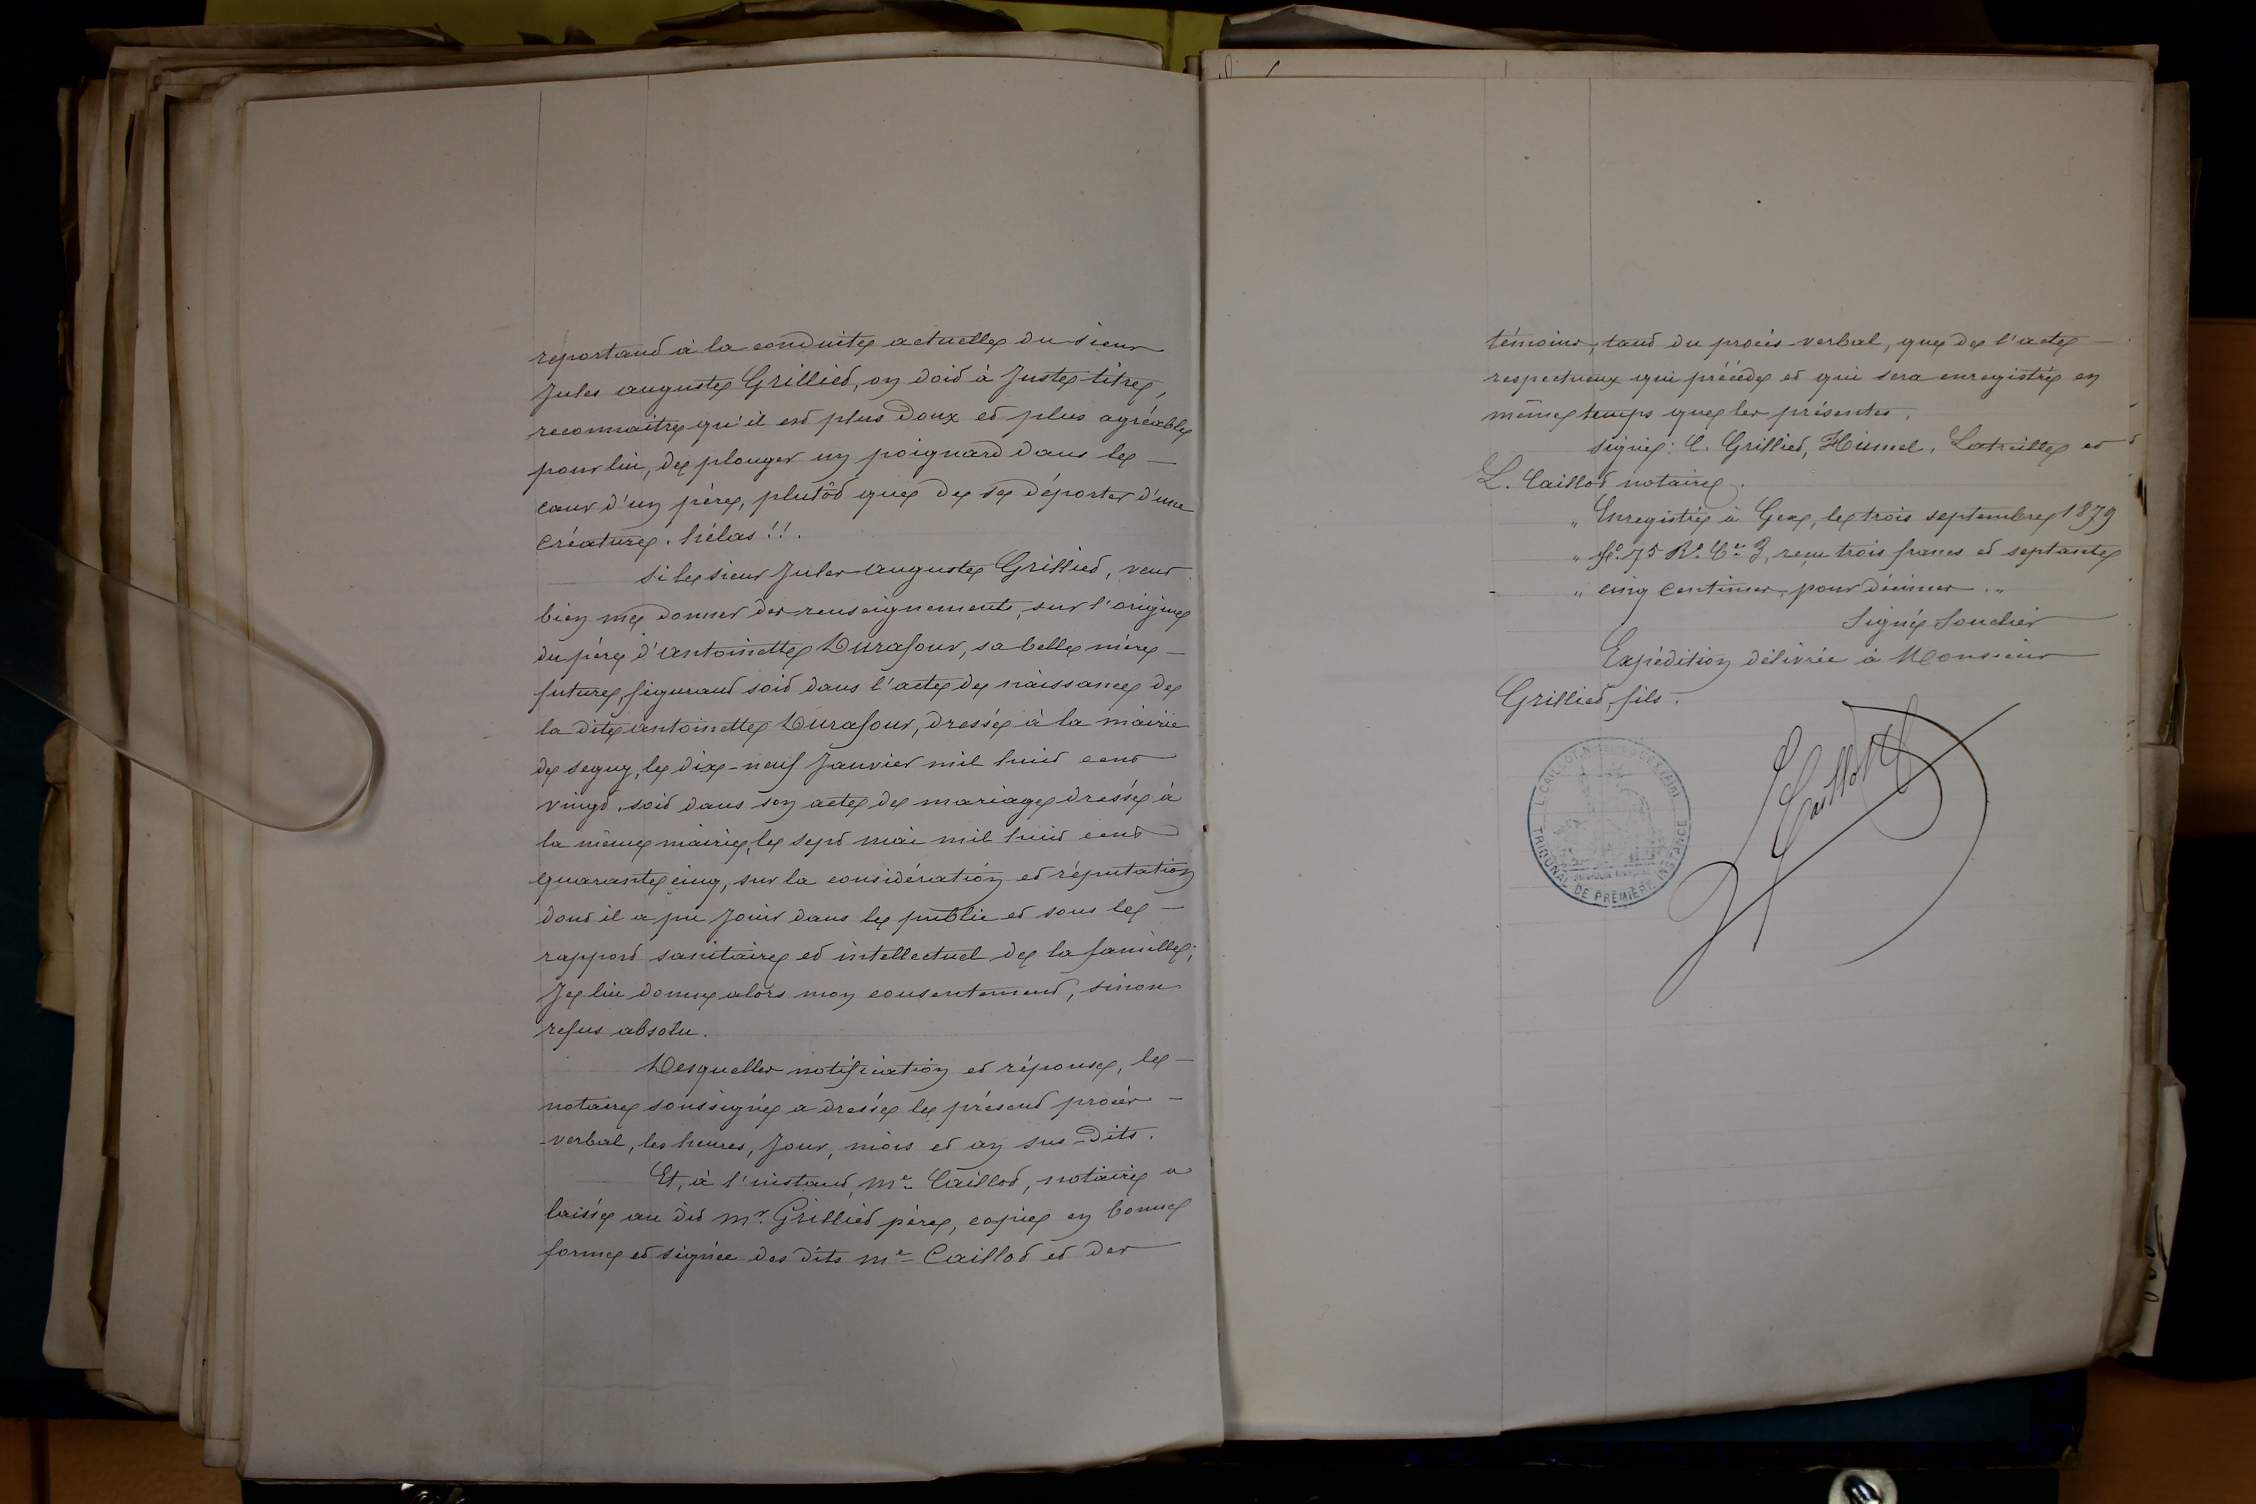 reportant à la conduite actuelle du sieur
Jules auguste Grilliet, on doit à Juste titre,
reconnaitre qu'il est plus doux et plus agréable
pour lui, de plonger un poignard dans le
cœur d'un père, plutôt que de se déporter d'une
créature. hélas!!.
Si le sieur Jules Auguste Grilliet, veut
bien me donner des renseignements, sur l'origine
du père d'Antoinette Durafour, sa belle mère
future, figurant soit dans l'acte de naissance de
la dite Antoinette Durafour, dressé à la mairie
de Segny, le dix-neuf Janvier mil huit cent
vingt, soit dans son acte de mariage dressé à
la même mairie, le sept mai mil huit cent
quarante cinq, sur la considération et réputation
dont il a pu Jouir dans le public et sous le
rapport sanitaire et intellectuel de la famille;
Je lui donne alors mon consentement, sinon
refus absolu.
Desquelles notification et réponse, le
notaire soussigné a dressé le présent procès
-verbal, les heures, Jour, mois et an sus-dits.
Et, à l'instant, Me Caillot, notaire a
laissé au dit Mr. Grilliet père, copie en bonne
forme et signée des dits Me Caillot et des
témoins, tant du procès-verbal, que de l'acte
respectueux qui précède et qui sera enregistré en
même temps que les présentes.
signé: C. Grilliet, Humel, Latreille et
L. Caillot notaire.
" Enregistré à Gex, le trois septembre 1879
" fo. 75 Ro. Ce. 3, reçu trois francs et septante
" cinq centimes, pour décimes. "
Signé Souchier
Expédition délivrée à Monsieur
Grilliet, fils.
L. Caillot
L. CAILLOT, N GEX (AIN)
TRIBUNAL DE PREMIERE INSTANCE